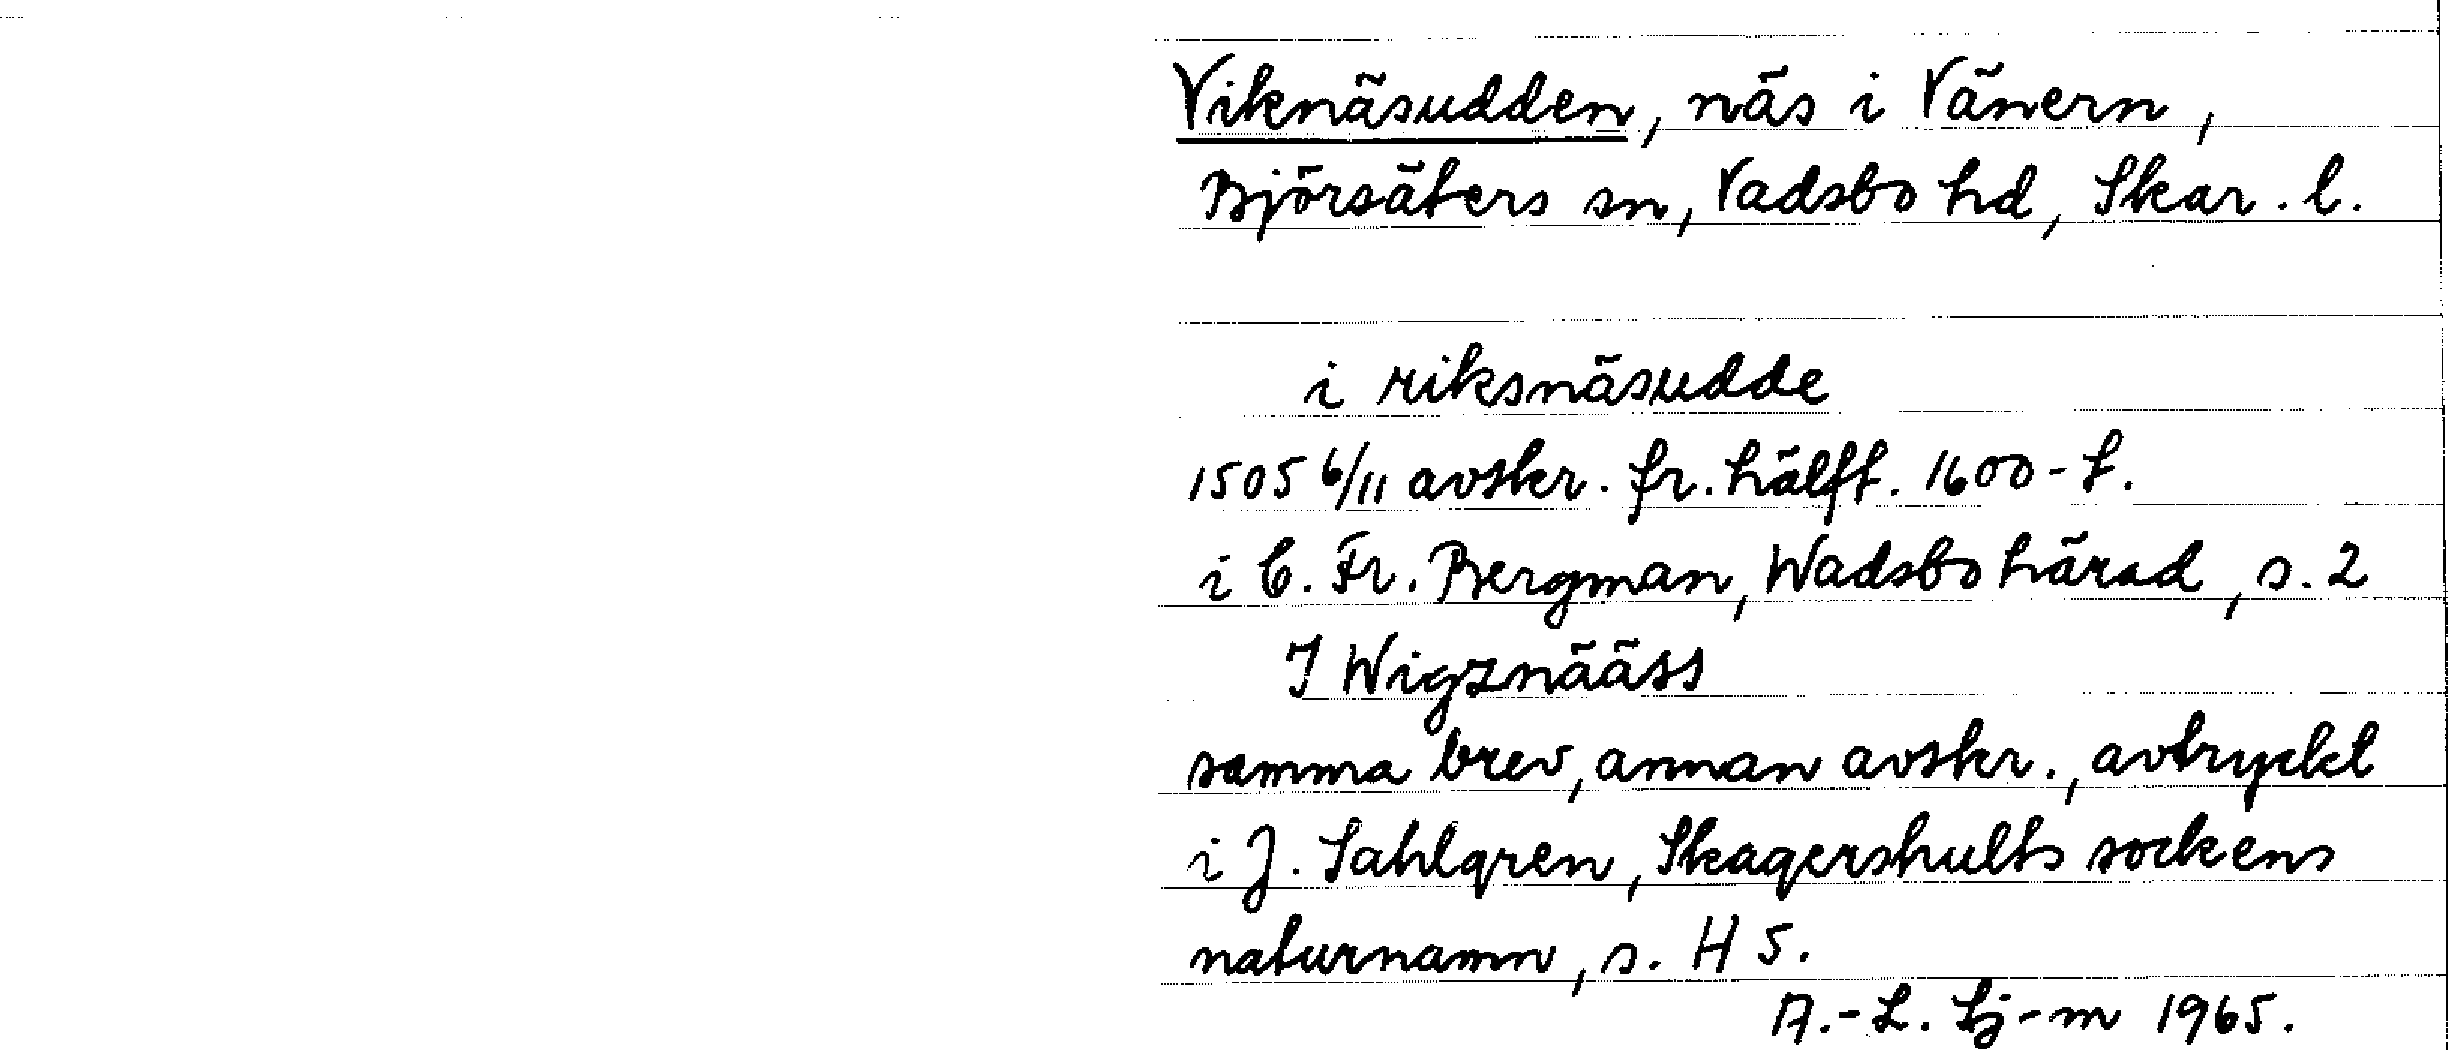 Viknäsudden, näs i Vänern,
Björsäters sn, Vadsbo hd, Skar. l.
i riksnäsudde
1505 6/11 avskr. fr. hälft. 1600-t.
i C. Fr. Bergman, Wadsbo härad, s. 2
I Wigznääss
samma brev, annan avskr., avtryckt
i J. Sahlgren, Skagershults sockens
naturnamn, s. H 5.
A.-L. Lj-m 1965.